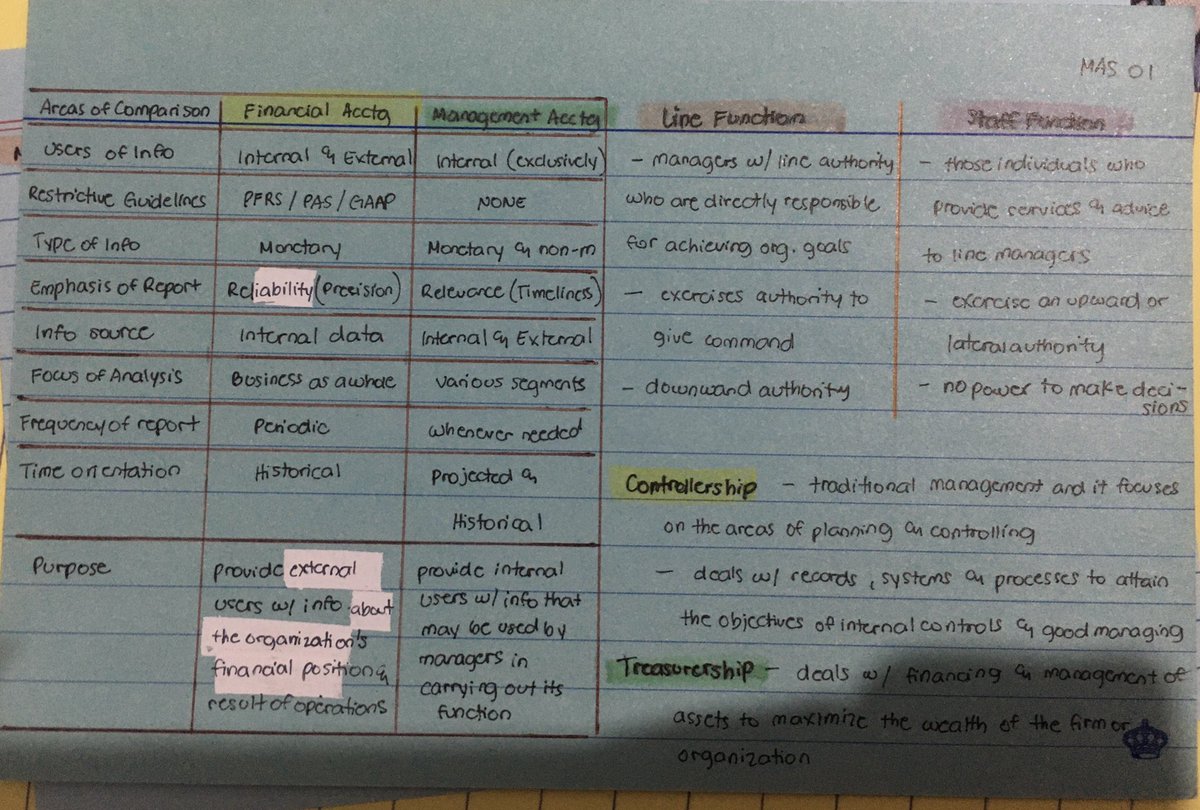 MAS 01
Areas of Comparison | Financial Acctg | Management Acctg
Users of Info | Internal & External | Internal (exclusively)
Restrictive Guidelines | PFRS / PAS / GAAP | NONE
Type of Info | Monetary | Monetary & non-m
Emphasis of Report | Reliability (Precision) | Relevance (Timeliness)
Info source | Internal data | Internal & External
Focus of Analysis | Business as a whole | various segments
Frequency of report | Periodic | whenever needed
Time orientation | Historical | Projected &
Historical
Purpose | provide external | provide internal
users w/ info about | users w/ info that
the organization's | may be used by
financial position & | managers in
result of operations | carrying out its
function
Line Function
- managers w/ line authority
who are directly responsible
for achieving org. goals
- exercises authority to
give command
- downward authority
Staff Function
- those individuals who
provide services & advice
to line managers
- exercise an upward or
lateral authority
- no power to make deci-
sions
Controllership - traditional management and it focuses
on the areas of planning & controlling
- deals w/ records, systems & processes to attain
the objectives of internal controls & good managing
Treasurership - deals w/ financing & management of
assets to maximize the wealth of the firm or
organization